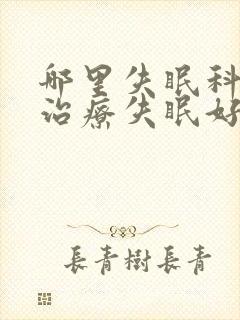 哪里失眠科
治療失眠好
長青樹長青